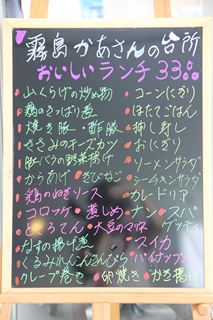 霧島かあさんの台所
おいしいランチ 3300
山くらげの炒め物 コーン(にぎり)
鶏のさっぱり煮 ほたてごはん
焼き豚・酢豚 押し寿し
ささみのチーズカツ おにぎり
豚バラの野菜揚げ ソーメンサラダ
からあげ きびなご ソーメンサラダ
鶏のねぎソース カレードリア
コロッケ・煮しめ ナン・スパ
ところてん・大豆のマリネ ゲッティ
なすの揚げ煮 スイカ
くるみれんこんきんぴら パイナップル
クレープ巻き 卵焼き かき揚げ